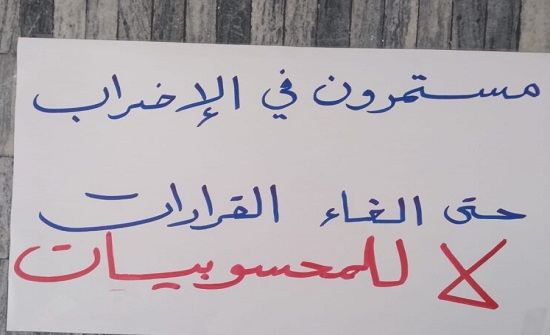 مستمرون في الإضراب
حتى الغاء القرارات
لا للمحسوبيات